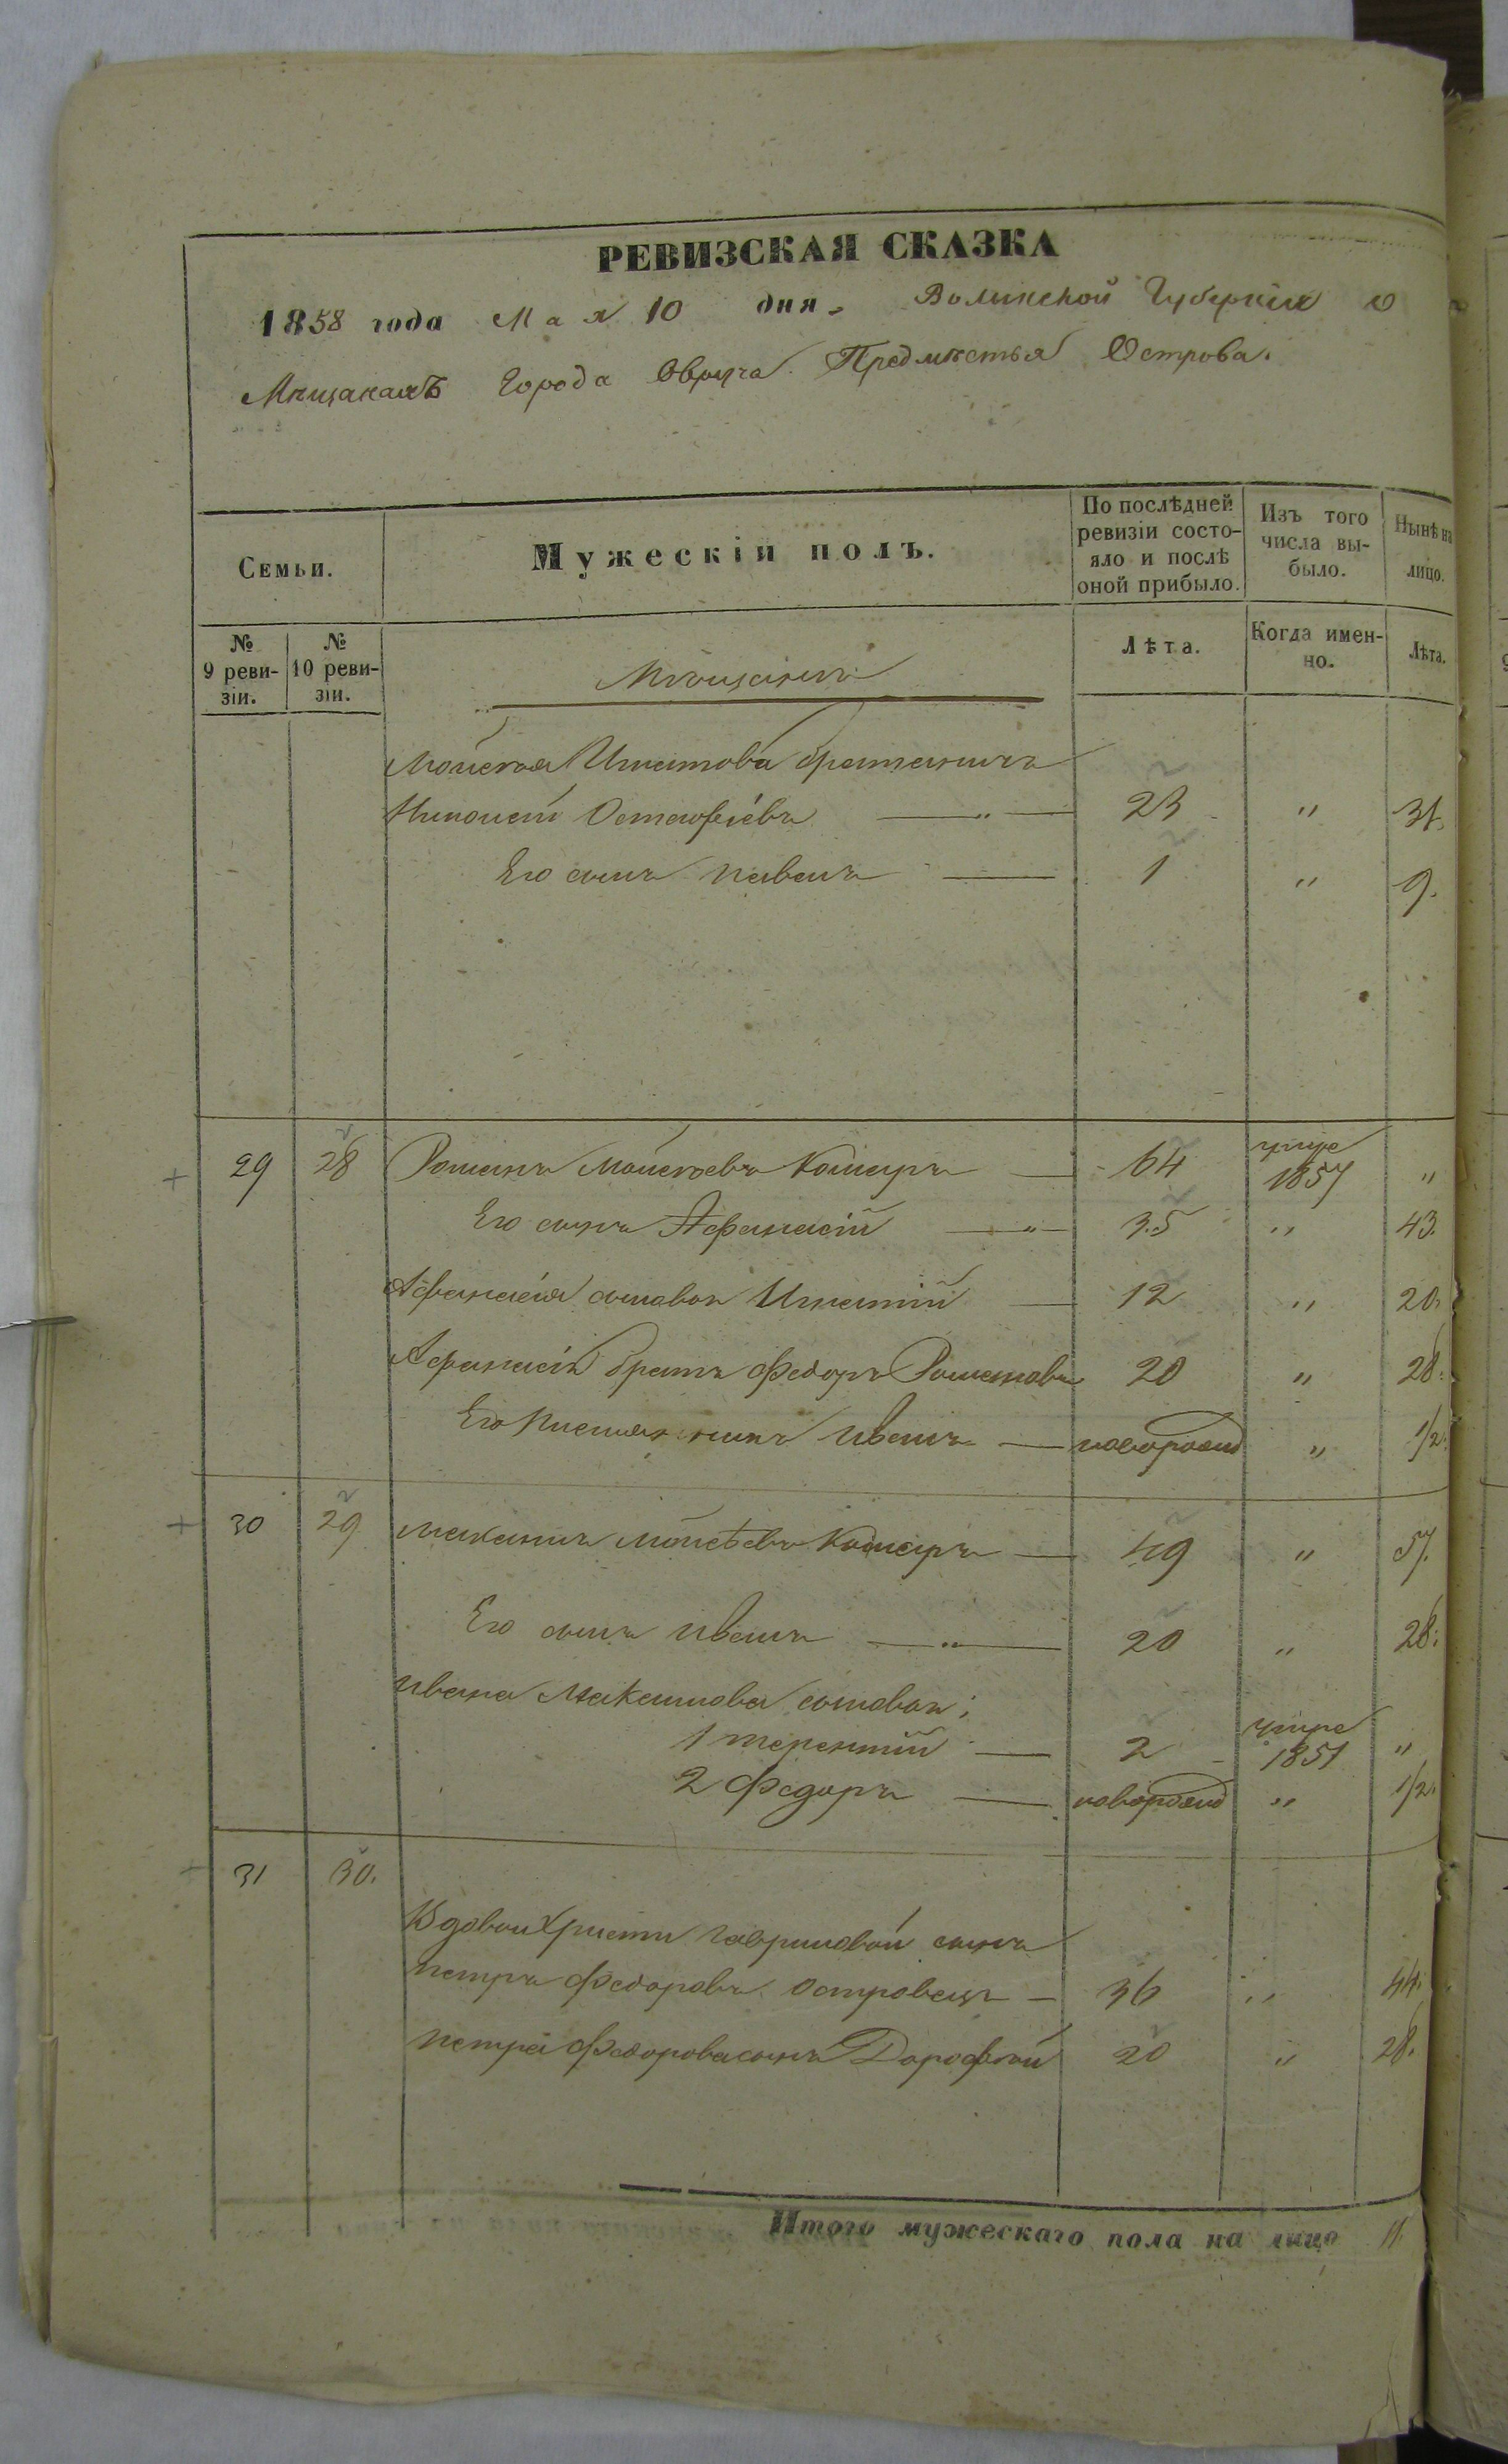 РЕВИЗСКАЯ СКАЗКА
1858 года Мая 10 дня, Волынской Губернiи о
Мѣщанахъ Города Овруча Предмѣстья Острова.
Семьи.
Мужескiй полъ.
По послѣдней ревизiи состо-
яло и послѣ
оной прибыло.
Изъ того
числа вы-
было.
Нынѣ на
лицо.
№
9 реви-
зiи.
№
10 реви-
зiи.
Мѣщане
Лѣта.
Когда имен-
но.
Лѣта.
Моисея Игнатова братаничъ
Остафiевъ — „ — 23 „ 31.
Его сынъ Павелъ — 1 „ 9.
29 28 Романъ Моисѣевъ Кошаръ — 64 умре 1857 „
Его сынъ Афанасiй — „ — 35 „ 43.
Афанасiя сыновья Игнатiй — 12 „ 20.
Афанасiя братъ Федоръ Романовъ 20 „ 28.
Его племянникъ Иванъ — новорожд „ 1/2.
30 29 Максимъ Моисѣевъ Кошаръ — 49 „ 57.
Его сынъ Иванъ — „ — 20 „ 28.
Ивана Максимова сыновья:
1 Терентiй — 2 умре 1851 „
2 Федоръ — новорожд „ 1/2.
31 30.
Вдовы Христи Гавриловой сынъ
Петръ Федоровъ Островецъ — 36 „ 44.
Петра Федорова сынъ Дорофѣй 20 „ 28.
Итого мужескаго пола на лицо 11.